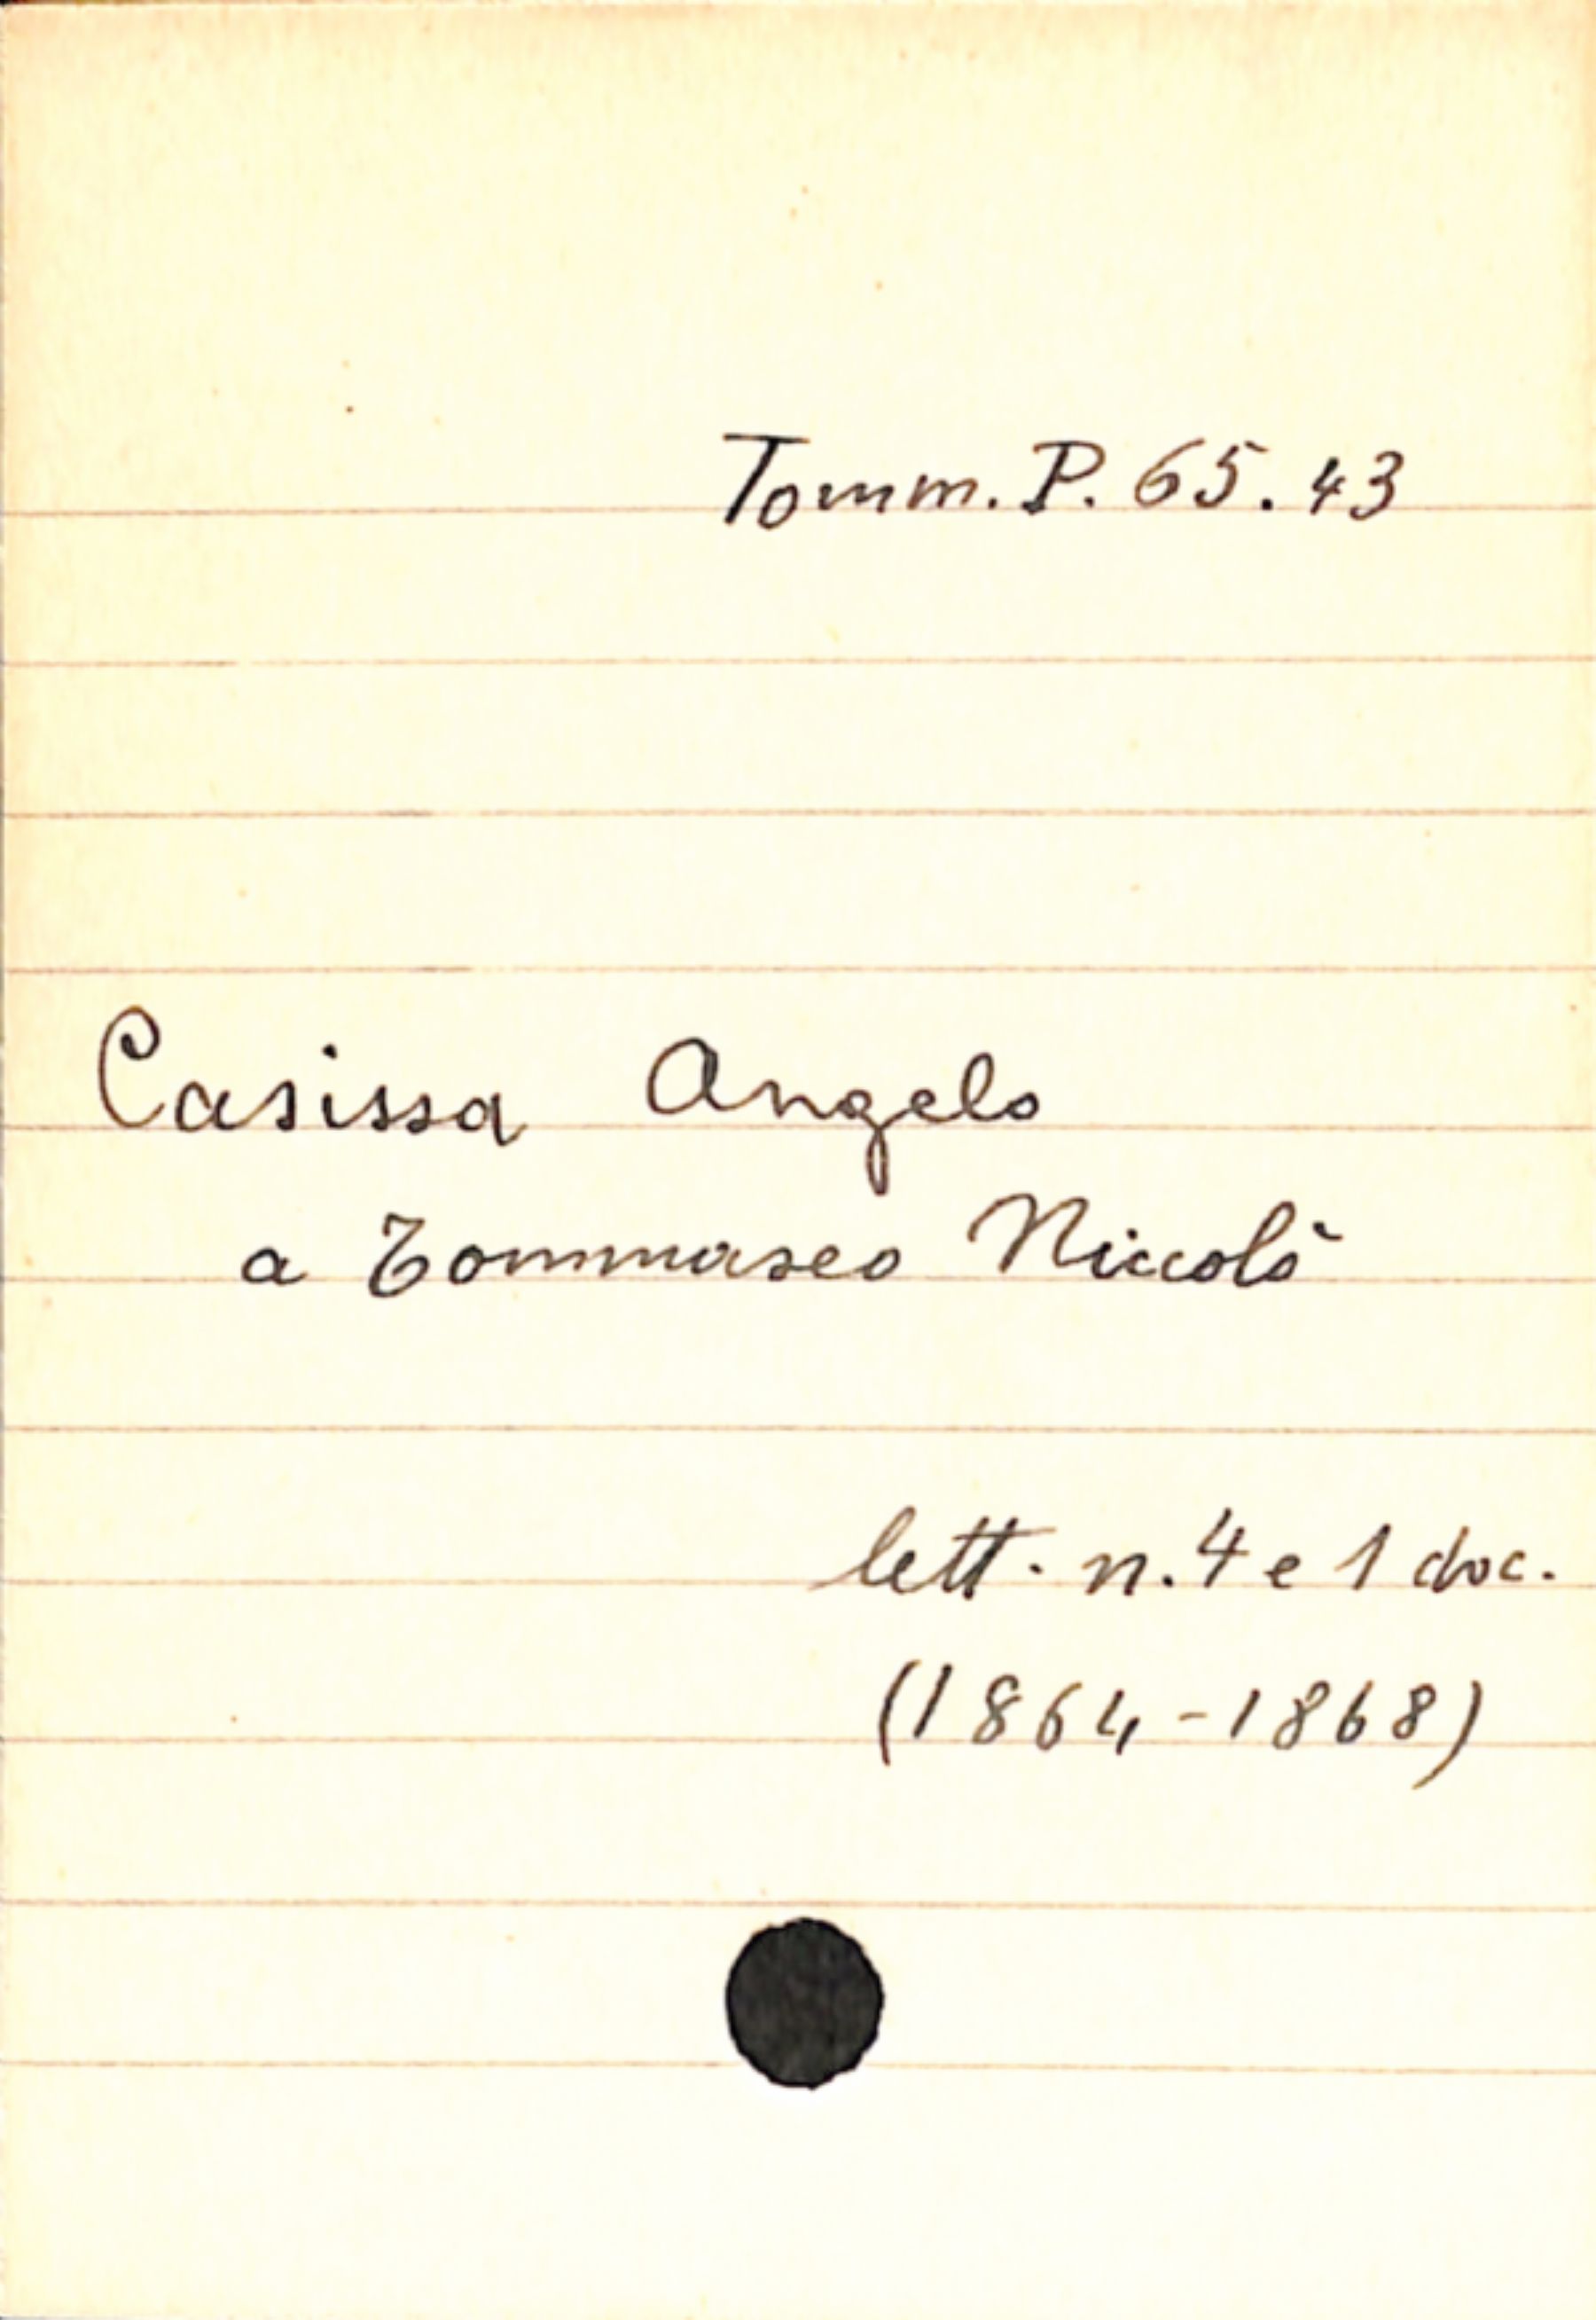 Tomm. P. 65. 43
Casissa Angelo
a Tommaseo Niccolò
lett. n. 4 e 1 doc.
(1864-1868)